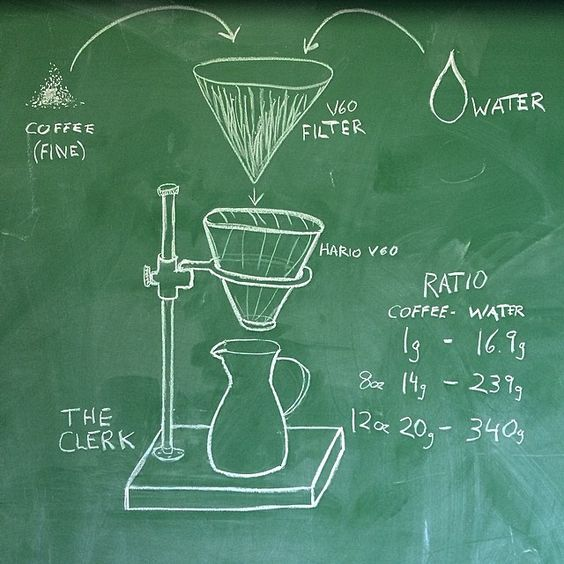 COFFEE
(FINE)
V60
FILTER
WATER
HARIO V60
RATIO
COFFEE - WATER
1g - 16.9g
8oz 14g - 239g
12oz 20g - 340g
THE
CLERK